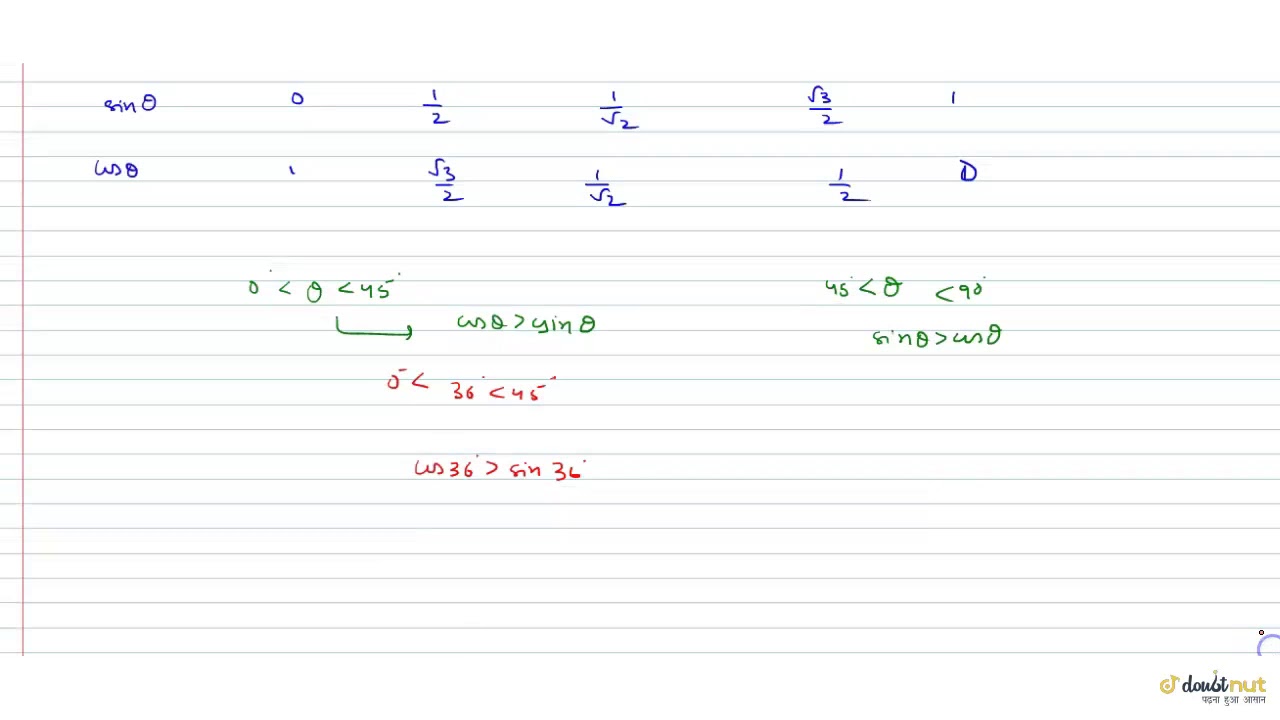 sin θ 0 1/2 1/√2 √3/2 1
cos θ 1 √3/2 1/√2 1/2 0
0° < θ < 45° 45° < θ < 90°
cos θ > sin θ sin θ > cos θ
0° < 36° < 45°
cos 36° > sin 36°
doubtnut
पढ़ना हुआ आसान